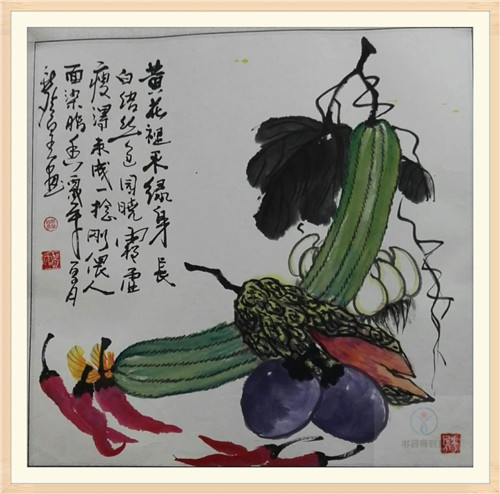 黄花褪束绿身長
白结丝包困晓霜虚
瘦得来成一捻刚偎人
面染脂香年月
画